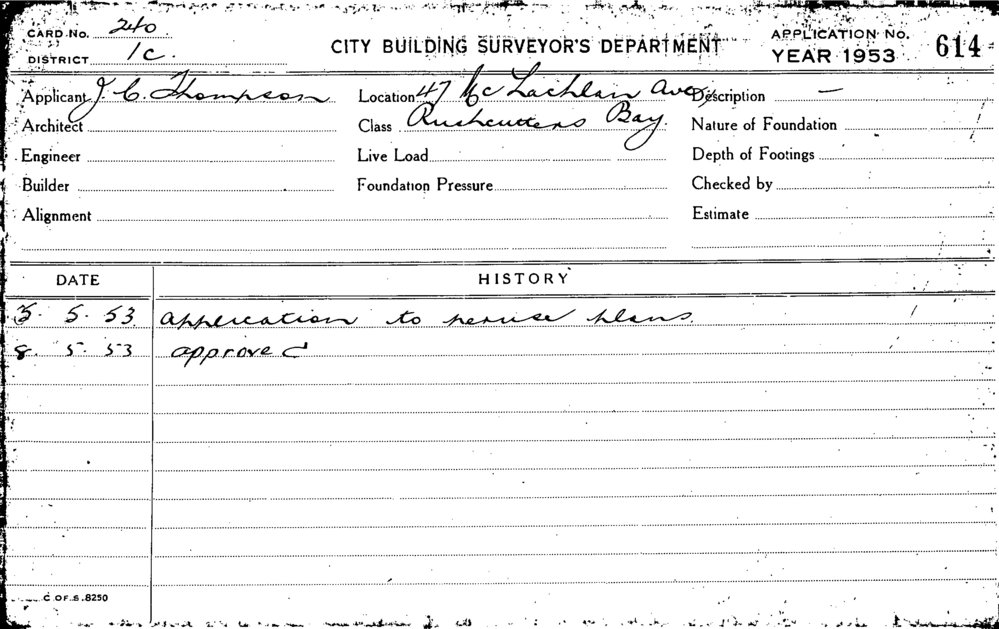 CARD No. 240
DISTRICT 1C.
CITY BUILDING SURVEYOR'S DEPARTMENT
APPLICATION No.
YEAR 1953
614
Applicant J. C. Thompson Location 47 McLachlan Ave, Description —
Architect Class Rushcutters Bay Nature of Foundation
Engineer Live Load Depth of Footings
Builder Foundation Pressure Checked by
Alignment Estimate
DATE HISTORY
5. 5. 53 application to peruse plans.
8. 5. 53 approved
C OF S. 8250